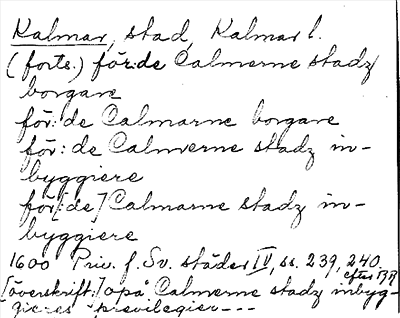 Kalmar, stad, Kalmar l.
(forts.) för: de Calmerne stadz
borgare
för: de Calmarne borgare
för: de Calmerne stadz in-
byggiere
för [de] Calmarne stadz in-
byggiere
1600 Priv. f. Sv. städer IV, ss. 239, 240
efter BRR
[överskrift:] opå Calmerne stadz inbyg-
gieres previlegier---